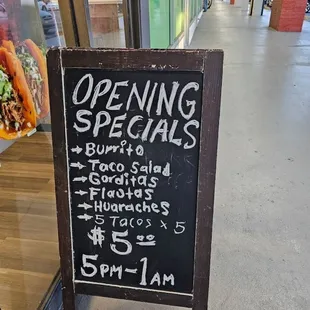 OPENING
SPECIALS
→Burrito
→Taco Salad
→Gorditas
→Flautas
→Huaraches
→5 Tacos x 5
$5.00
5PM-1AM